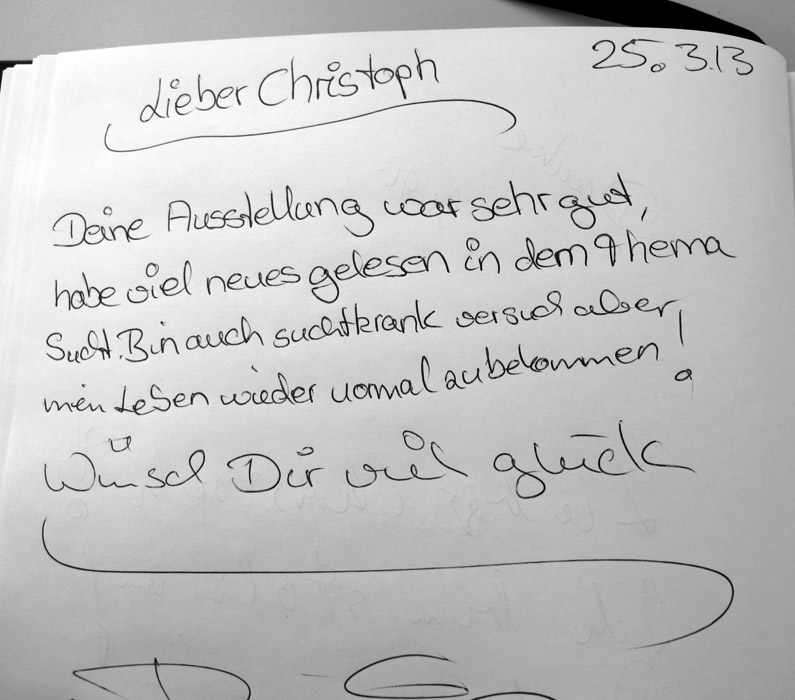 Lieber Christoph 25.3.13
Deine Ausstellung war sehr gut,
habe viel neues gelesen in dem Thema
Sucht. Bin auch suchtkrank versuch aber
mein Leben wieder normal zubekommen!
Wünsch Dir viel glück